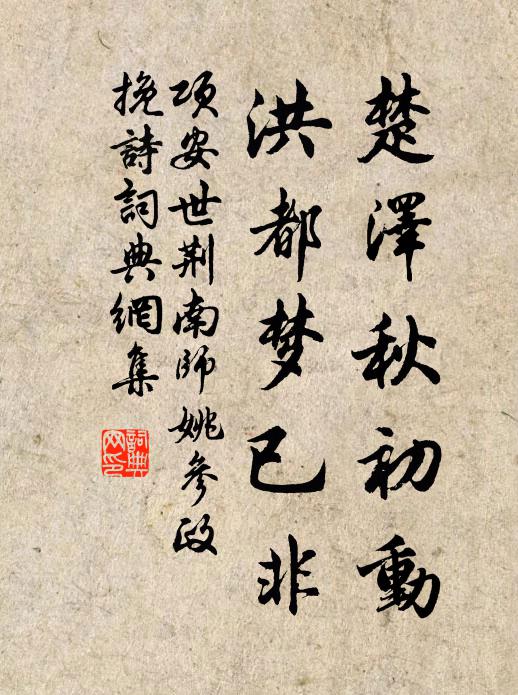 楚澤秋初動
洪都梦已非
项安世荆南师姚參政
挽詩詞典網集
詞典网印